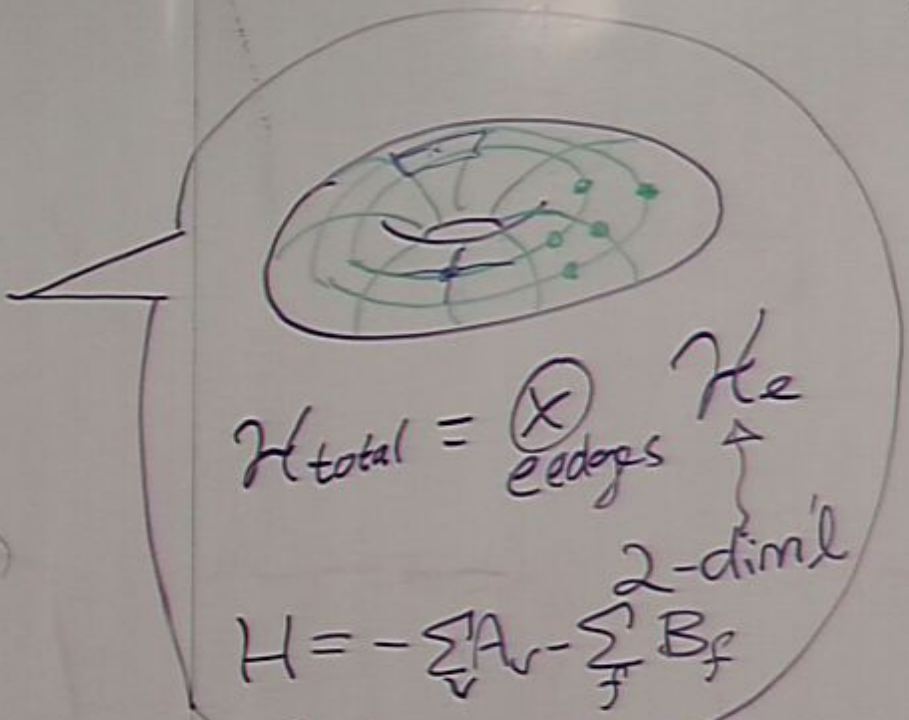 ℋtotal = ⊗ e∈edges ℋe
2-dim'l
H = - Σv Av - Σf Bf